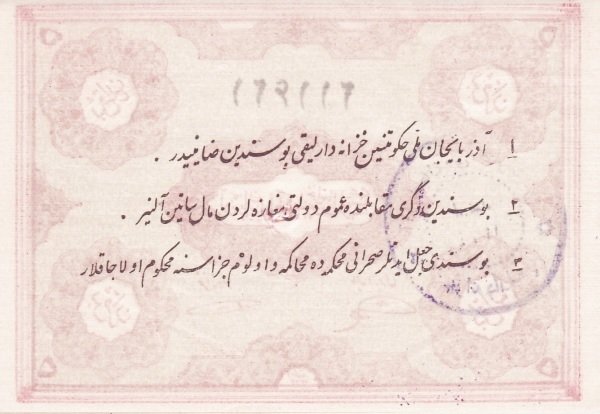 ۱ آذربایجان ملی حکومتنین خزانه دارلیقی بوسندین ضامنیدر .
۲ بوسندین دگری مقابلنده عموم دولتی مغازه لردن مال ساتین آلنیر .
۳ بوسندی جعل ایدنلر صحرائی محکمه ده محاکمه و اولوم جزاسنه محکوم اولاجاقلار